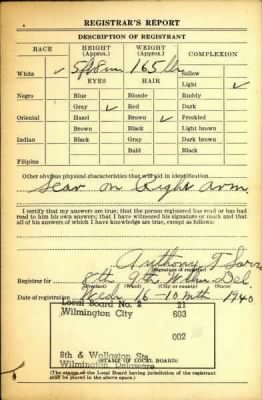 REGISTRAR'S REPORT
DESCRIPTION OF REGISTRANT
RACE HEIGHT (Approx.) WEIGHT (Approx.) COMPLEXION
White ✓ 5ft 8 in 165 lbs Sallow
EYES HAIR Light ✓
Negro Blue Blonde Ruddy
Gray ✓ Red Dark
Oriental Hazel Brown ✓ Freckled
Brown Black Light brown
Indian Black Gray Dark brown
Bald Black
Filipino
Other obvious physical characteristics that will aid in identification
Scar on Right arm
I certify that my answers are true; that the person registered has read or has had
read to him his own answers; that I have witnessed his signature or mark and that
all of his answers of which I have knowledge are true, except as follows:
Anthony T
(Signature of registrar)
Registrar for 8th 9th Wilm Del
(Precinct) (Ward) (City or county) (State)
Date of registration 16 - 10 mth 1940
Local Board No. 2 21
Wilmington City 603
002
8th & Wollaston Sts.
Wilmington, Delaware
(STAMP OF LOCAL BOARD)
(The stamp of the Local Board having jurisdiction of the registrant
shall be placed in the above space.)